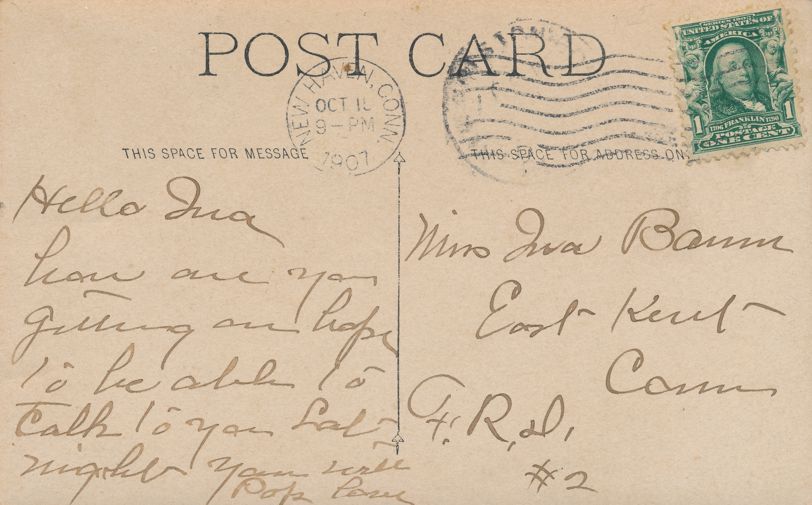 POST CARD
NEW HAVEN, CONN.
OCT 1
9-PM
1907
SERIES 1902
UNITED STATES OF
AMERICA
1 1
1706 FRANKLIN 1790
POSTAGE
ONE CENT
THIS SPACE FOR MESSAGE
THIS SPACE FOR ADDRESS ON
Hello Ina
how are you
getting on hope
to be able to
talk to you Sat
night yours with
Pop Love
Miss Ina
East Kent
Conn
F. R. D.
#2